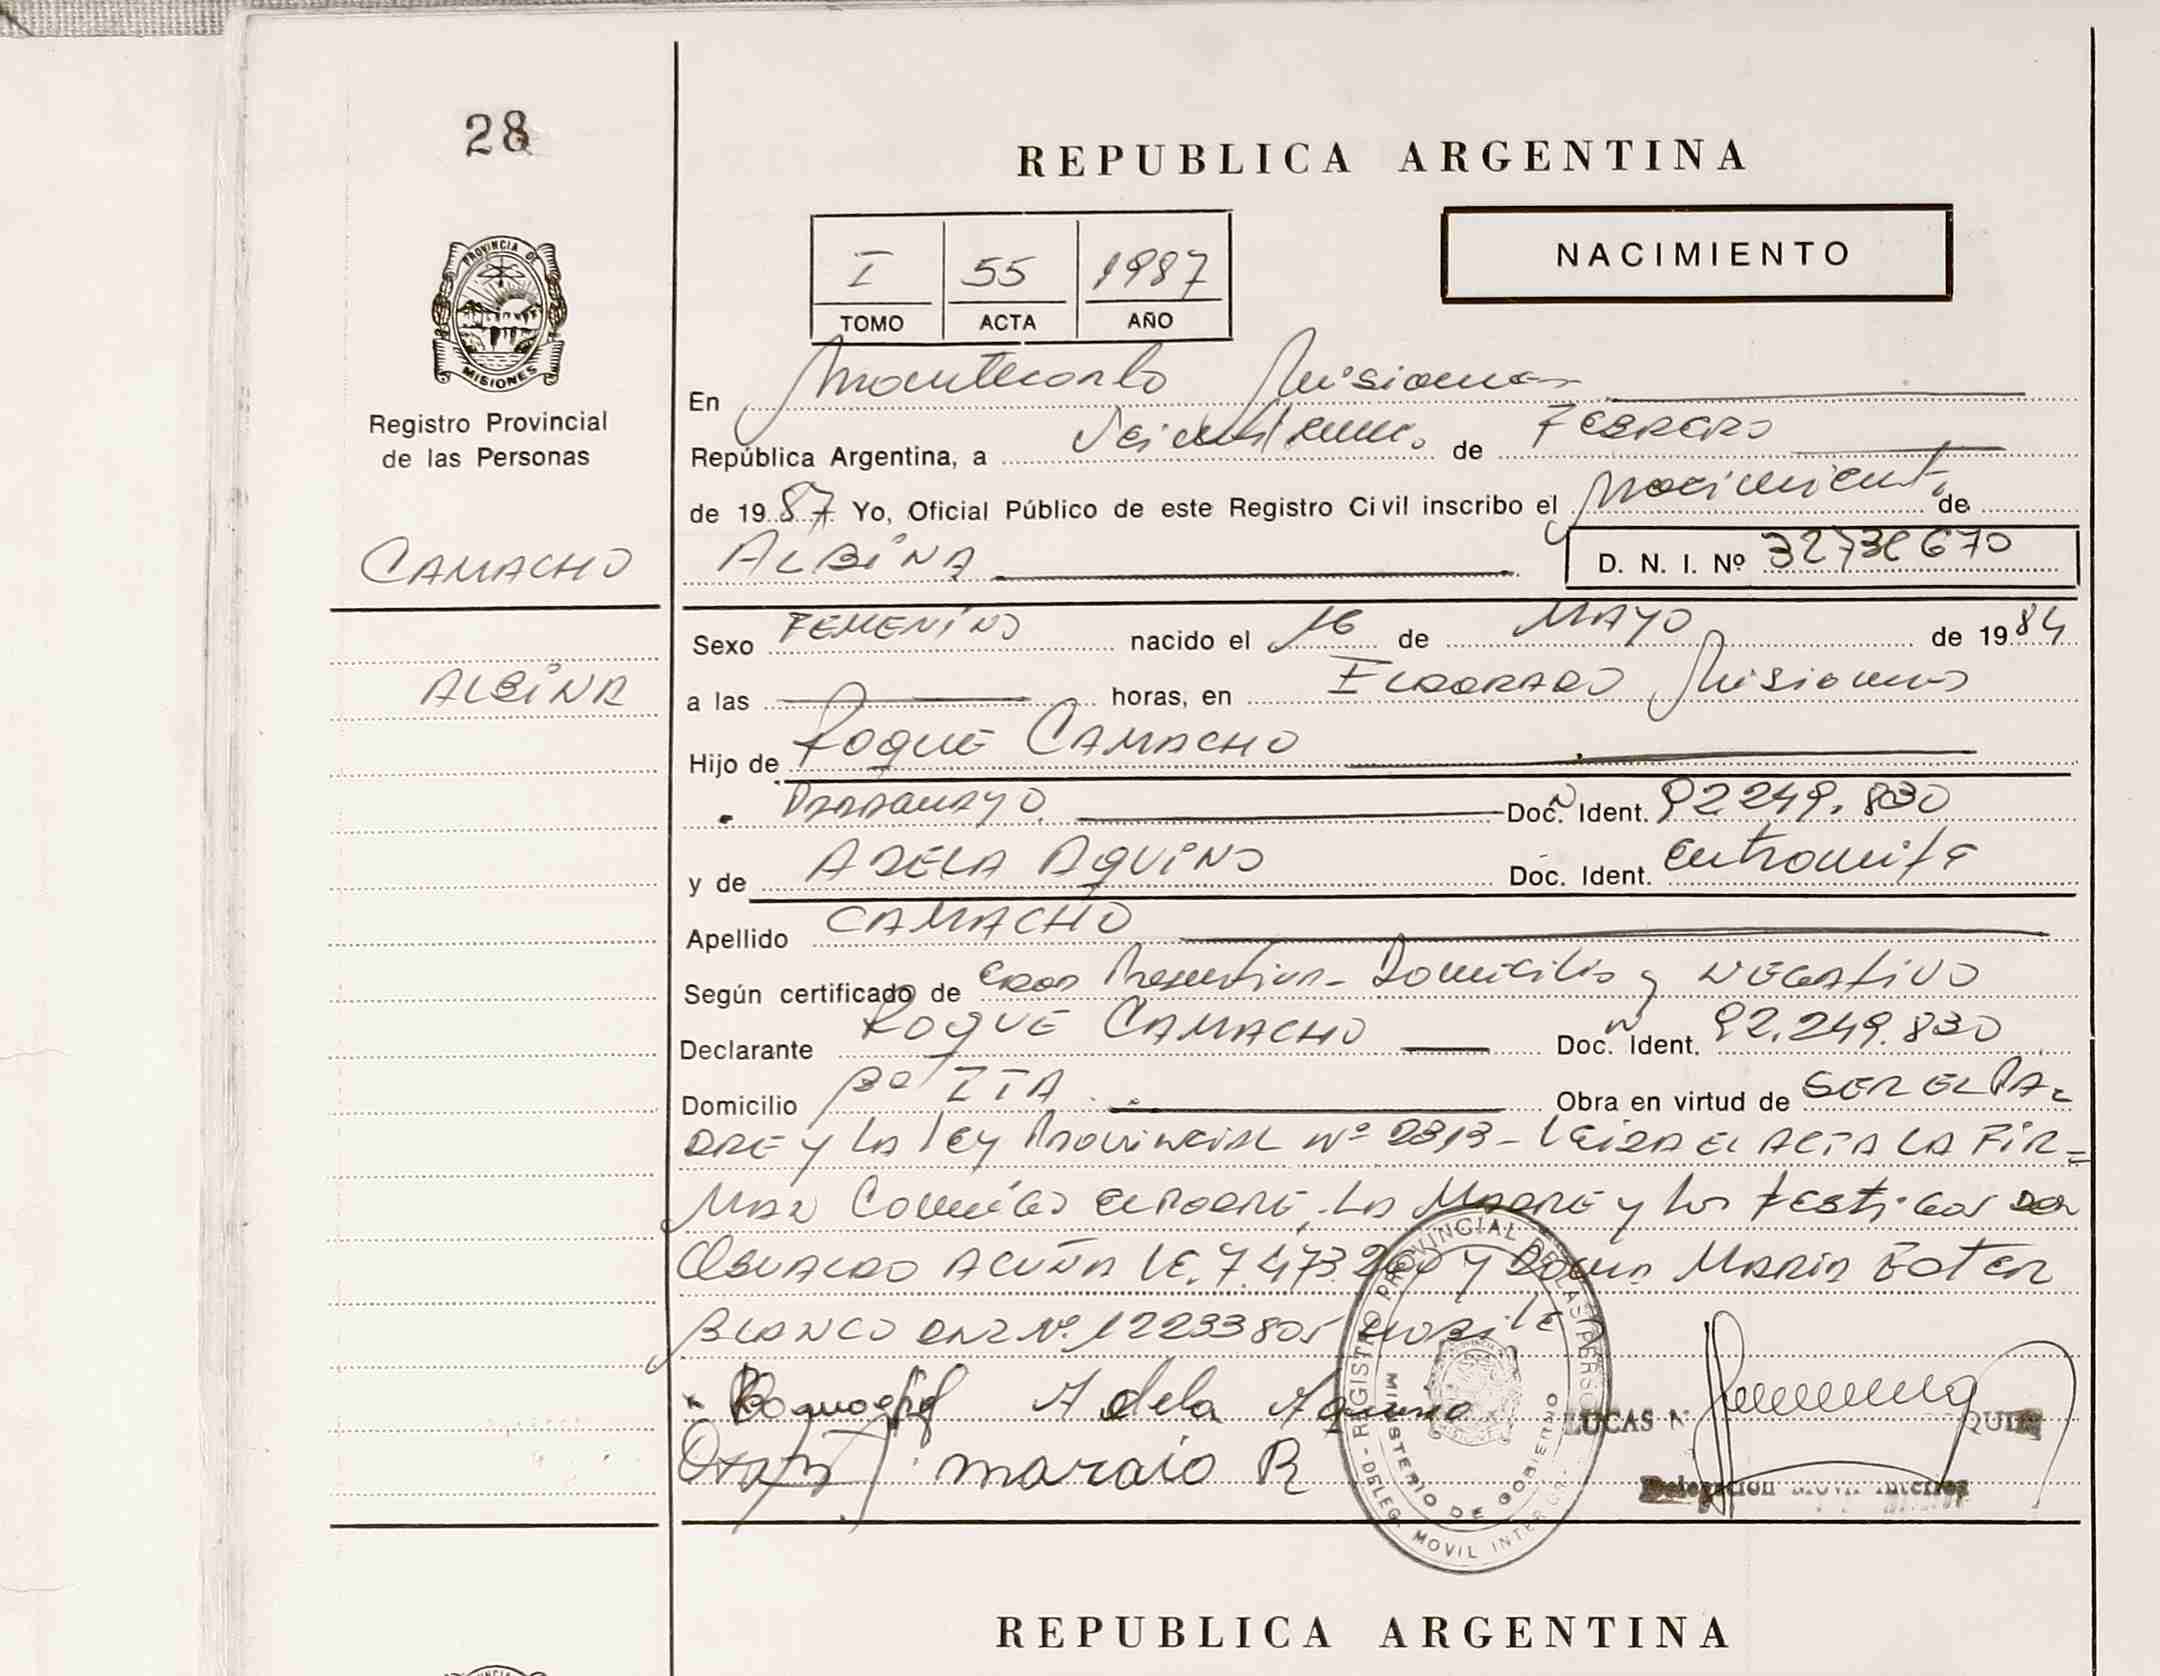 28
REPUBLICA ARGENTINA
NACIMIENTO
I 55 1987
TOMO ACTA AÑO
PROVINCIA DE
MISIONES
Registro Provincial
de las Personas
CAMACHO
ALBINA
En Montecarlo Misiones
República Argentina, a de FEBRERO
de 1987 Yo, Oficial Público de este Registro Civil inscribo el Nacimiento de
ALBINA D. N. I. Nº
Sexo FEMENINO nacido el 16 de MAYO de 1984
a las horas, en ELDORADO Misiones
Hijo de ROQUE CAMACHO
PARAGUAYO Doc. Ident. 92249.830
y de ADELA AQUINO Doc. Ident.
Apellido CAMACHO
Según certificado de EDAD Presuntiva - Domicilio y NEGATIVO
Declarante ROQUE CAMACHO Doc. Ident. 92.249.830
Domicilio Obra en virtud de SER EL PA-
DRE y LA ley PROVINCIAL Nº 2313 - LEIDA EL ACTA LA FIR=
MAN Conmigo el PADRE, LA MADRE y los testigos DON
OSVALDO ACUÑA LE. 7.473.260 y DOÑA MARIA
BLANCO DNI Nº. 12233805
Adela Aquino
REGISTRO PROVINCIAL DE LAS PERSONAS
MINISTERIO DE GOBIERNO
DELEG. MOVIL INTERIOR
LUCAS N
Delegación Movil
REPUBLICA ARGENTINA